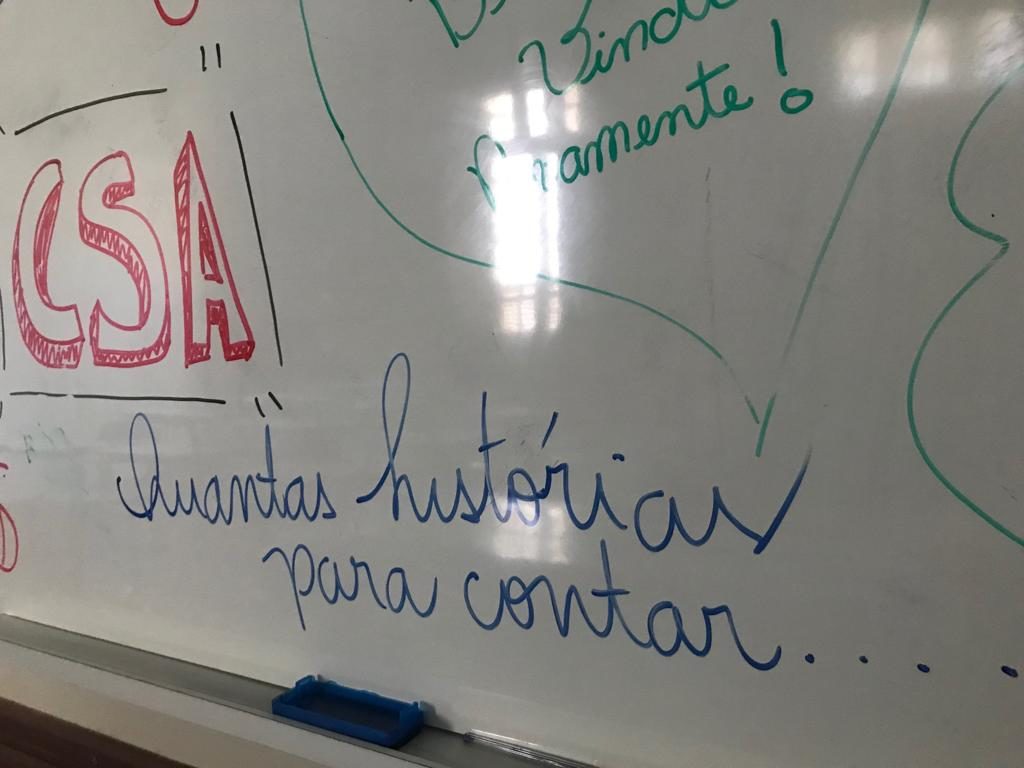 Vindo
novamente!
CSA
Quantas histórias
para contar....